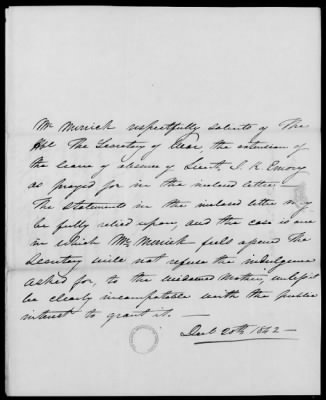 Mr Merrick respectfully solicits of The
Hble The Secretary of War, the extension of
the leave of absence of Lieut. J. K. Emory
as prayed for in the inclosed letter.
The statements in the inclosed letter may
be fully relied upon, and the case is one
in which Mr Merrick feels assured The
Secretary will not refuse the indulgence
asked for, to the widowed Mother, unless it
be clearly incompatable with the public
interest to grant it. —
20th 1842 —